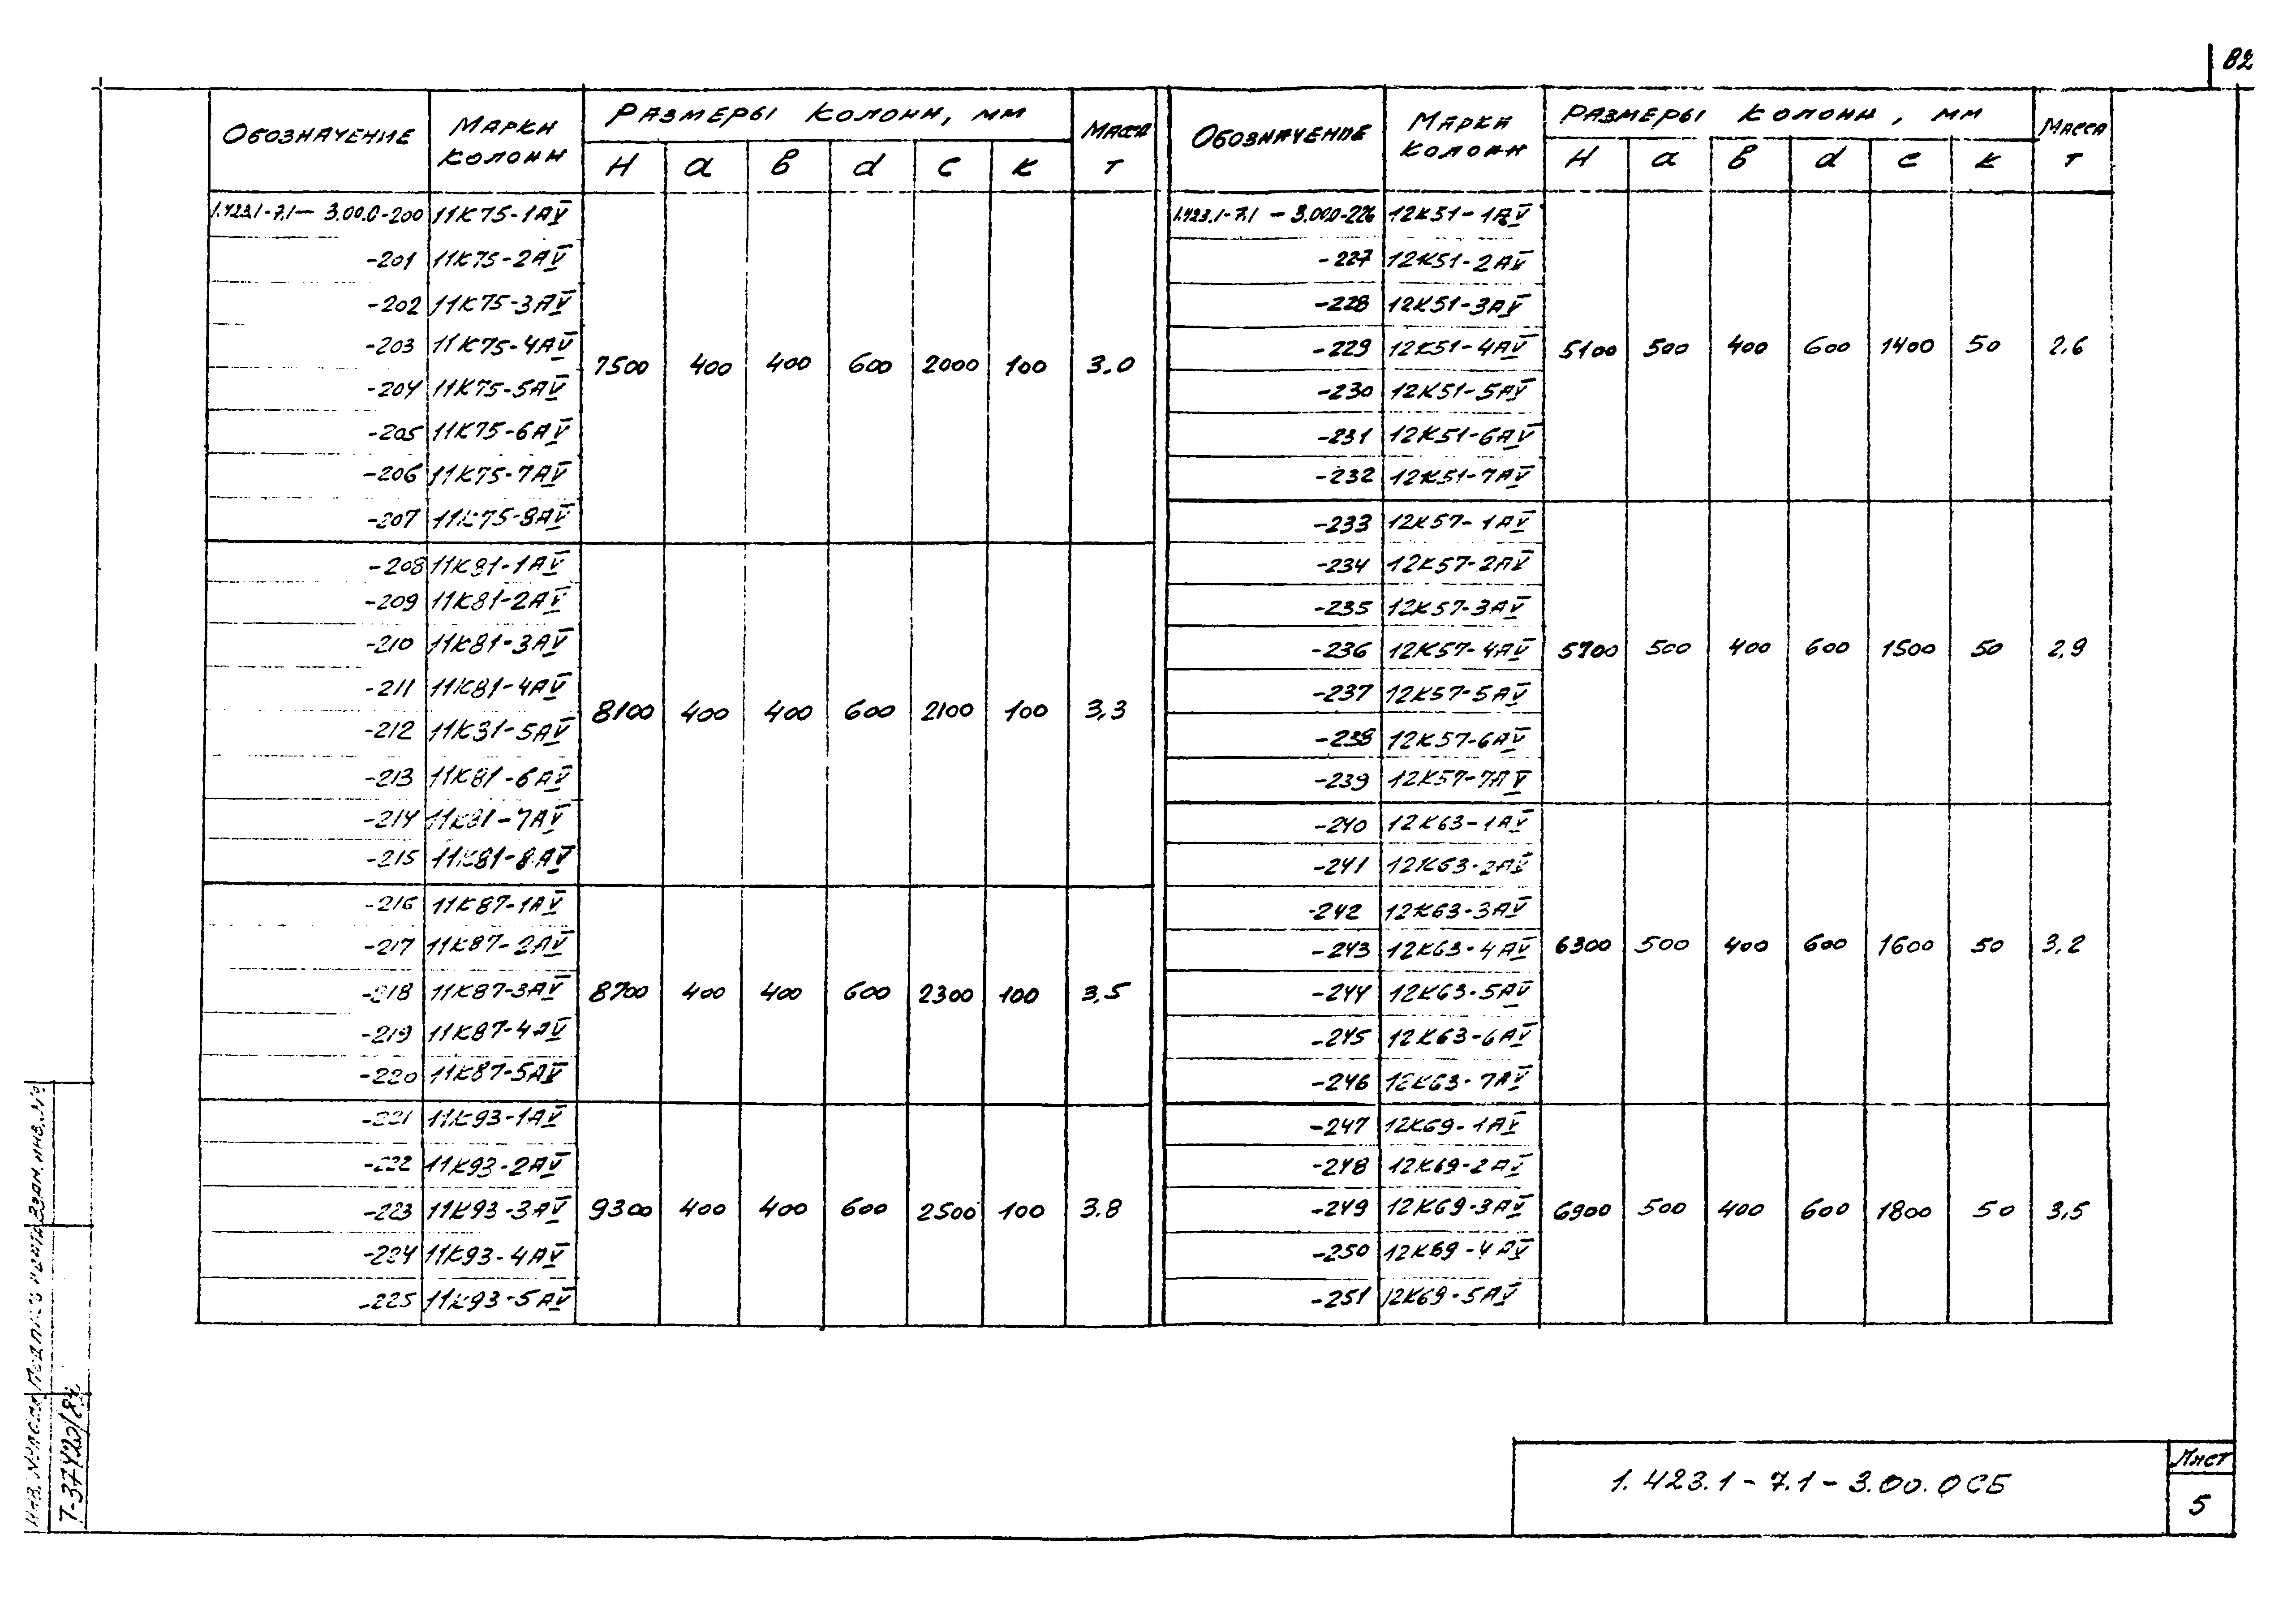 82
Обозначение Марки колонн Размеры колонн, мм Масса т
H a в d c к
1.423.1-7.1-3.00.0-200 11К75-1АV
-201 11К75-2АV
-202 11К75-3АV
-203 11К75-4АV
7500 400 400 600 2000 100 3.0
-204 11К75-5АV
-205 11К75-6АV
-206 11К75-7АV
-207 11К75-8АV
-208 11К81-1АV
-209 11К81-2АV
-210 11К81-3АV
-211 11К81-4АV
8100 400 400 600 2100 100 3,3
-212 11К81-5АV
-213 11К81-6АV
-214 11К81-7АV
-215 11К81-8АV
-216 11К87-1АV
-217 11К87-2АV
-218 11К87-3АV 8700 400 400 600 2300 100 3,5
-219 11К87-4АV
-220 11К87-5АV
-221 11К93-1АV
-222 11К93-2АV
-223 11К93-3АV 9300 400 400 600 2500 100 3.8
-224 11К93-4АV
-225 11К93-5АV
Обозначение Марка колонн Размеры колонн, мм Масса т
H a в d c к
1.423.1-7.1-3.00.0-226 12К51-1АV
-227 12К51-2АV
-228 12К51-3АV
-229 12К51-4АV 5100 500 400 600 1400 50 2,6
-230 12К51-5АV
-231 12К51-6АV
-232 12К51-7АV
-233 12К57-1АV
-234 12К57-2АV
-235 12К57-3АV
-236 12К57-4АV 5700 500 400 600 1500 50 2,9
-237 12К57-5АV
-238 12К57-6АV
-239 12К57-7АV
-240 12К63-1АV
-241 12К63-2АV
-242 12К63-3АV
-243 12К63-4АV 6300 500 400 600 1600 50 3,2
-244 12К63-5АV
-245 12К63-6АV
-246 12К63-7АV
-247 12К69-1АV
-248 12К69-2АV
-249 12К69-3АV 6900 500 400 600 1800 50 3,5
-250 12К69-4АV
-251 12К69-5АV
1.423.1-7.1-3.00.0СБ
Лист
5
Взам. инв. №
Инв. № подл.
Т-37420/84